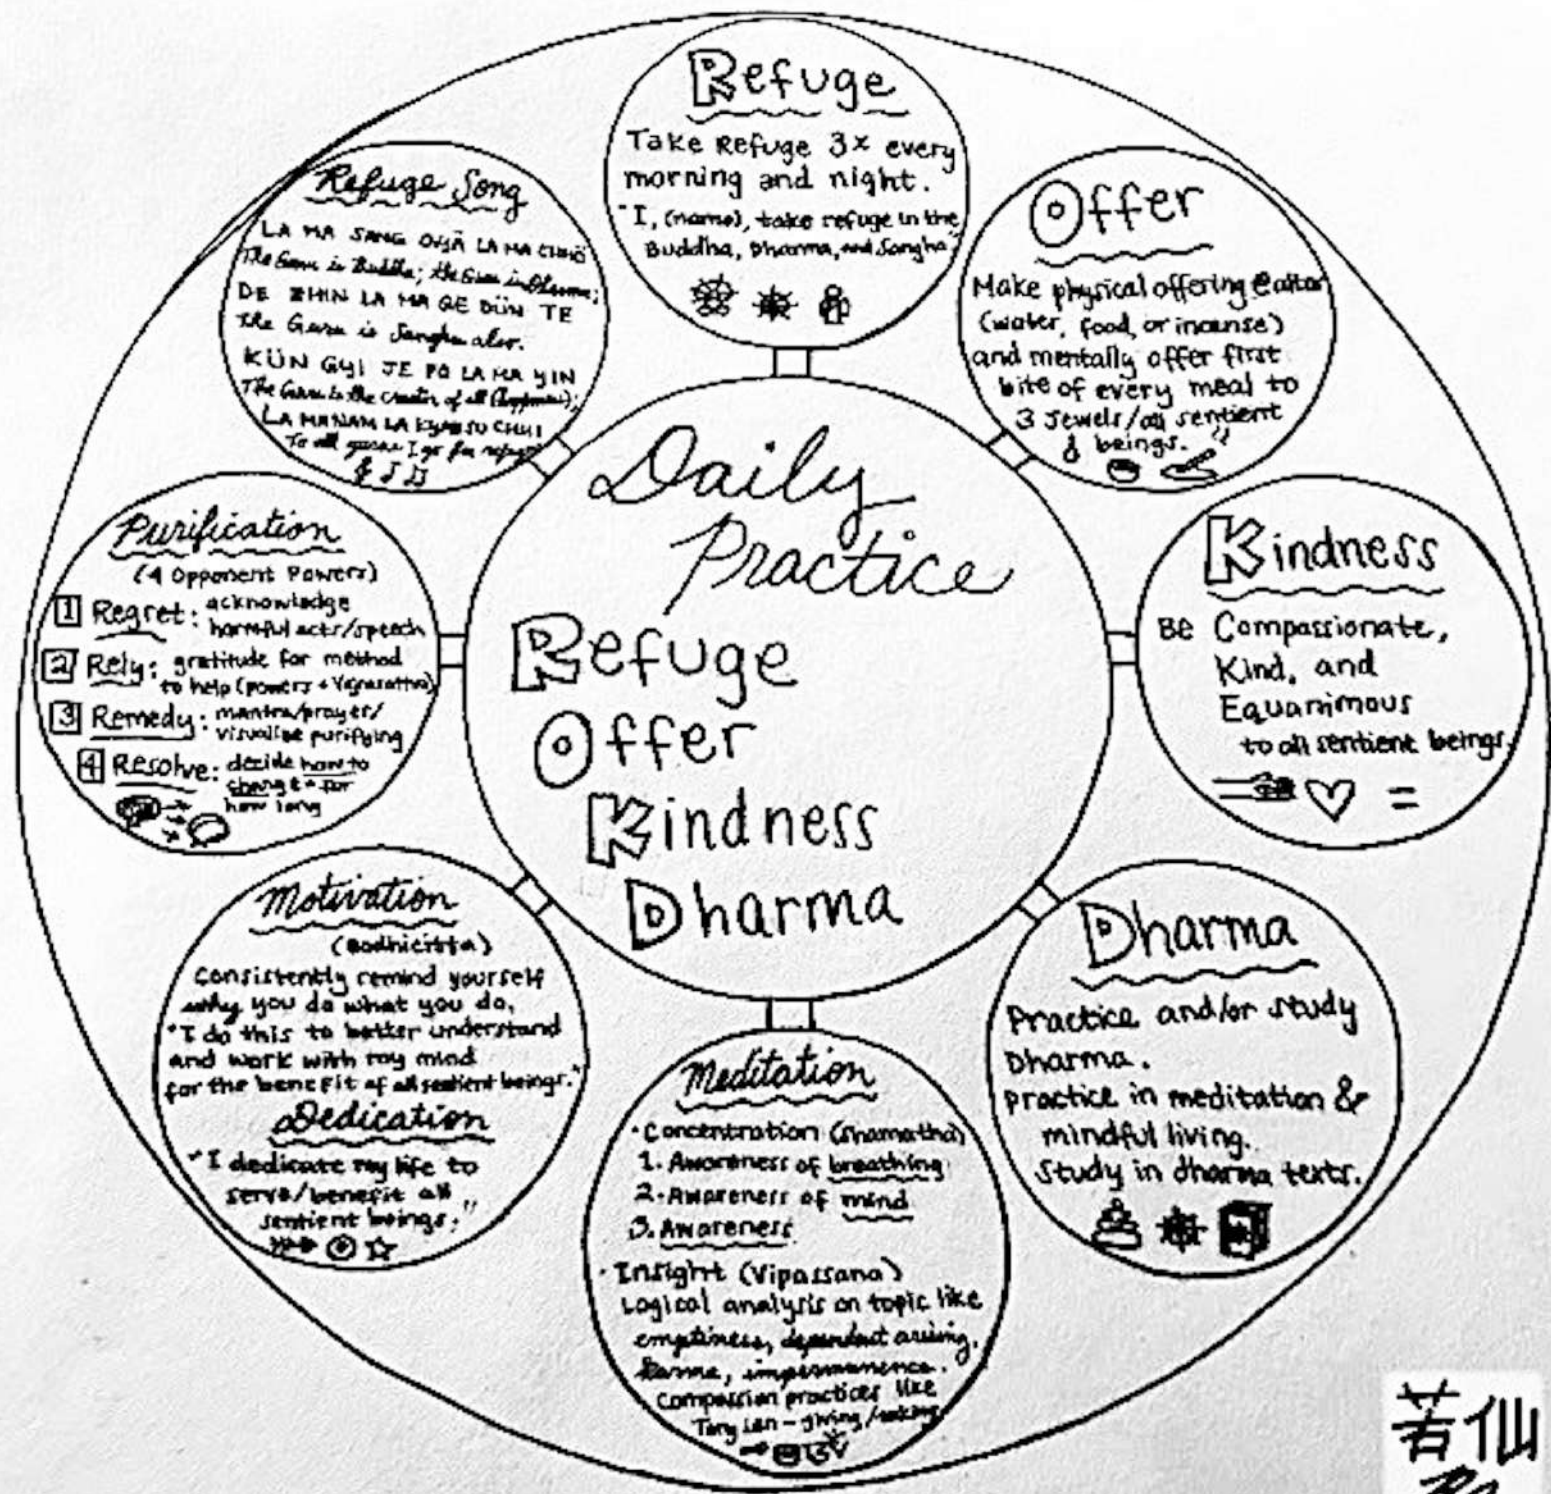 Daily
Practice
Refuge
Offer
Kindness
Dharma
Refuge
Take Refuge 3x every
morning and night.
"I, (name), take refuge in the
Buddha, Dharma, and Sangha"
Offer
Make physical offering @ altar
(water, food, or incense)
and mentally offer first
bite of every meal to
3 Jewels/all sentient
beings.
Kindness
Be Compassionate,
Kind, and
Equanimous
to all sentient beings.
Dharma
Practice and/or study
Dharma.
practice in meditation &
mindful living.
Study in dharma texts.
Meditation
• Concentration (Shamatha)
1. Awareness of breathing
2. Awareness of mind
3. Awareness
• Insight (Vipassana)
Logical analysis on topic like
emptiness, dependent arising,
karma, impermanence.
Compassion practices like
Tong Len - giving/taking
Motivation
(Bodhicitta)
Consistently remind yourself
why you do what you do.
"I do this to better understand
and work with my mind
for the benefit of all sentient beings."
Dedication
"I dedicate my life to
serve/benefit all
sentient beings."
Purification
(4 Opponent Powers)
1 Regret: acknowledge
harmful acts/speech
2 Rely: gratitude for method
to help (powers +
3 Remedy: mantra/prayer/
visualize purifying
4 Resolve: decide how to
change + for
how long
Refuge Song
LA MA SANG GYÄ LA MA CHHÖ
The Guru is Buddha; the Guru is Dharma;
DE ZHIN LA MA GE DÜN TE
The Guru is Sangha also.
KÜN GYI JE PO LA MA YIN
The Guru is the creator of all (happiness);
LA MA NAM LA KYAB SU CHHI
To all gurus I go for refuge
若仙